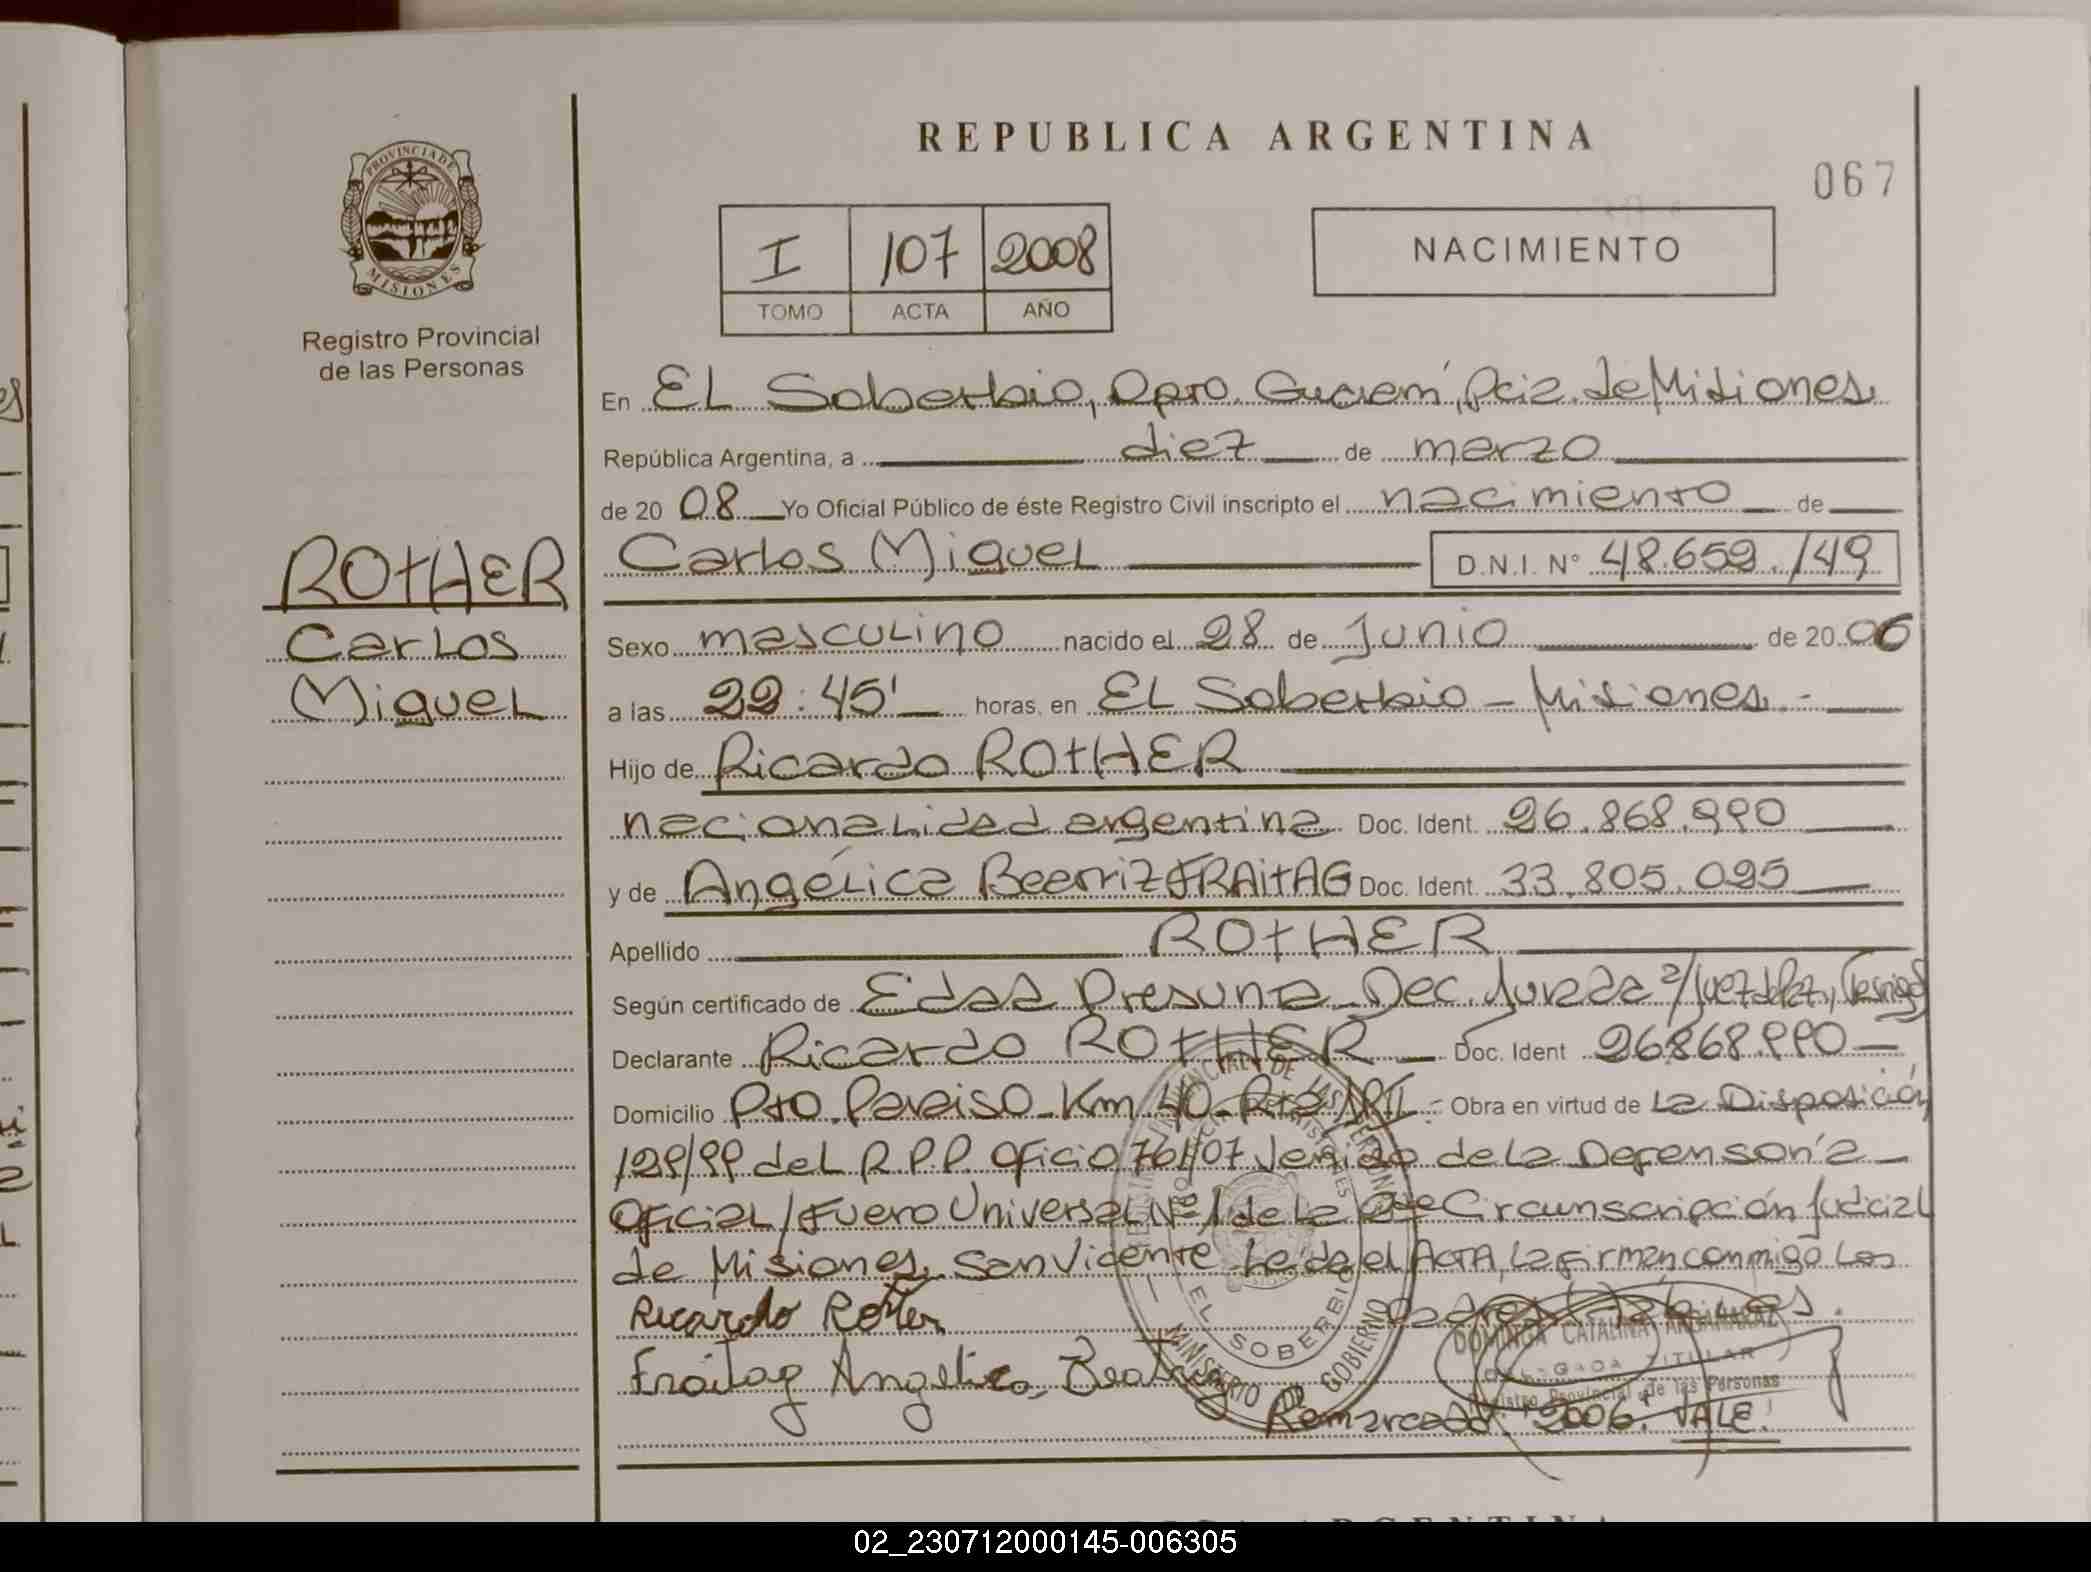 REPUBLICA ARGENTINA
067
PROVINCIA DE MISIONES
Registro Provincial
de las Personas
I 107 2008
TOMO ACTA AÑO
NACIMIENTO
En EL Soberbio, Dpto. Guaraní, Pcia. de Misiones
República Argentina, a diez de marzo
de 2008 Yo Oficial Público de éste Registro Civil inscripto el nacimiento de
ROtHER
Carlos
Miguel
Carlos Miguel D.N.I. N° 48.659./49
Sexo masculino nacido el 28 de Junio de 2006
a las 22:45' horas, en EL Soberbio - Misiones.-
Hijo de Ricardo ROtHER
nacionalidad argentina Doc. Ident. 26.868.990
y de Angélica Beatriz FRAitAG Doc. Ident. 33.805.095
Apellido ROtHER
Según certificado de Edad Presunta Dec. Jurada a/Juez de Paz, Testigos
Declarante Ricardo ROtHER Doc. Ident 26868.990
Domicilio Pto. Paraiso - Km 40 - Obra en virtud de La Disposición
129/99 del R.P.P. Oficio 761/07 venido de la Defensoría
Oficial/Fuero Universal N° 1 de la 2da Circunscripción Judicial
de Misiones, San Vicente Leída el ACTA, la firman conmigo los
Ricardo Rother
Fraitag Angelica Beatriz
DOMINGA CATALINA
DELEGADA TITULAR
Registro Provincial de las Personas
Remarcado: "2006". VALE.
EL SOBERBIO
MINISTERIO DE GOBIERNO
02_230712000145-006305